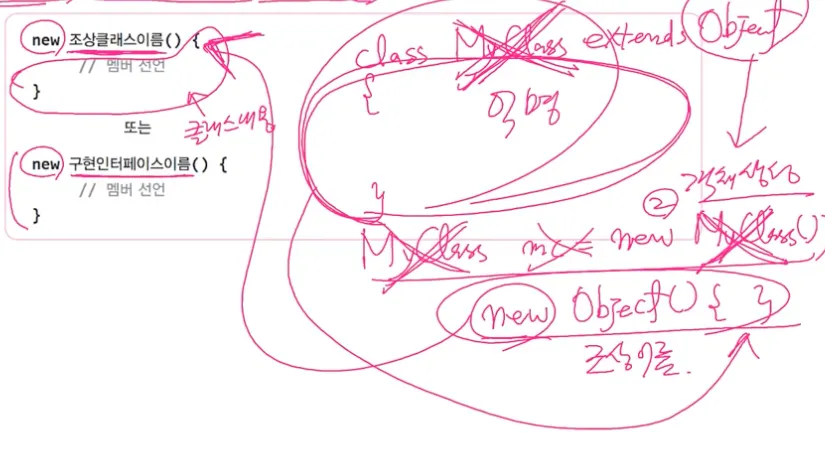 new 조상클래스이름() {
// 멤버 선언
}
클래스내용
또는
new 구현인터페이스이름() {
// 멤버 선언
}
class MyClass extends Object
{
익명
}
② 객체생성
MyClass mc = new MyClass()
new Object() { }
조상이름.